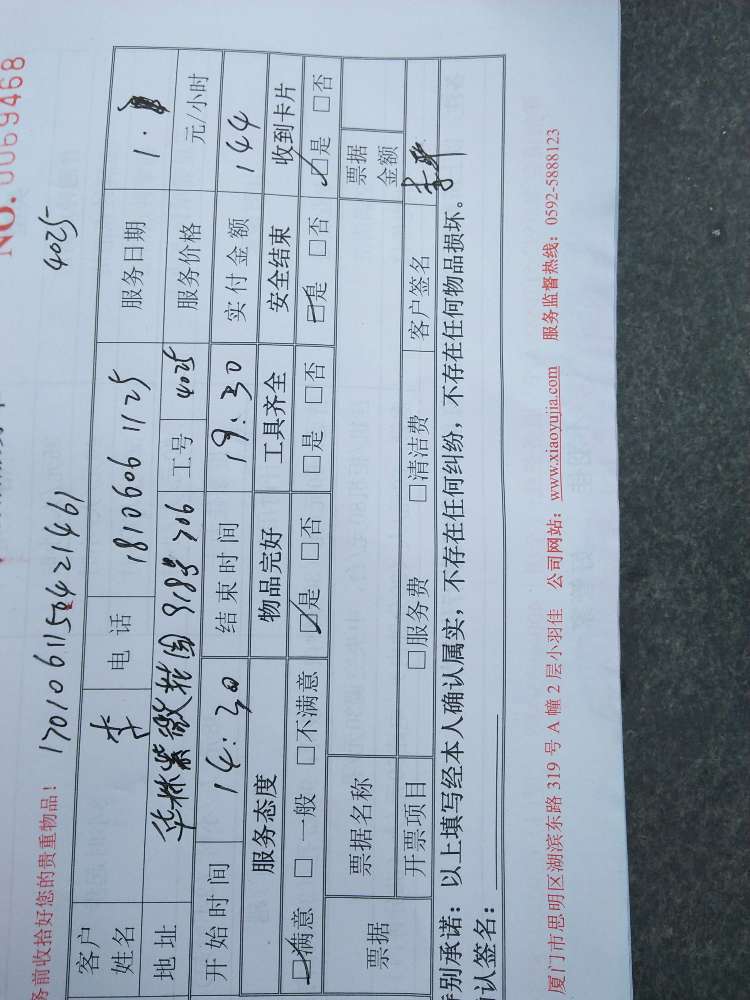 NO. 0069468
务前收拾好您的贵重物品！
1701061150421461
4025
客户姓名 李 电话 18106061125 服务日期 1.
地址 华林紫薇花园 918号706 工号 4025 服务价格 元/小时
开始时间 14:30 结束时间 19:30 实付金额 144
服务态度 物品完好 工具齐全 安全结束 收到卡片
☑满意 □一般 □不满意 ☑是 □否 □是 □否 ☑是 □否 ☑是 □否
票据 票据名称 票据金额
开票项目 □服务费 □清洁费 客户签名 李
特别承诺：以上填写经本人确认属实，不存在任何纠纷，不存在任何物品损坏。
确认签名：
厦门市思明区湖滨东路 319 号 A 幢 2 层小羽佳 公司网站：www.xiaoyujia.com 服务监督热线：0592-5888123